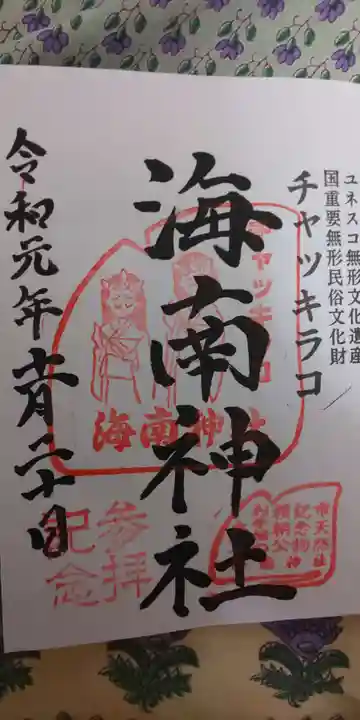 ユネスコ無形文化遺産
国重要無形民俗文化財
チャツキラコ
海南神社
令和元年十一月二十日
チャツキラコ
海南神社
参拝
記念
市天然
記念物